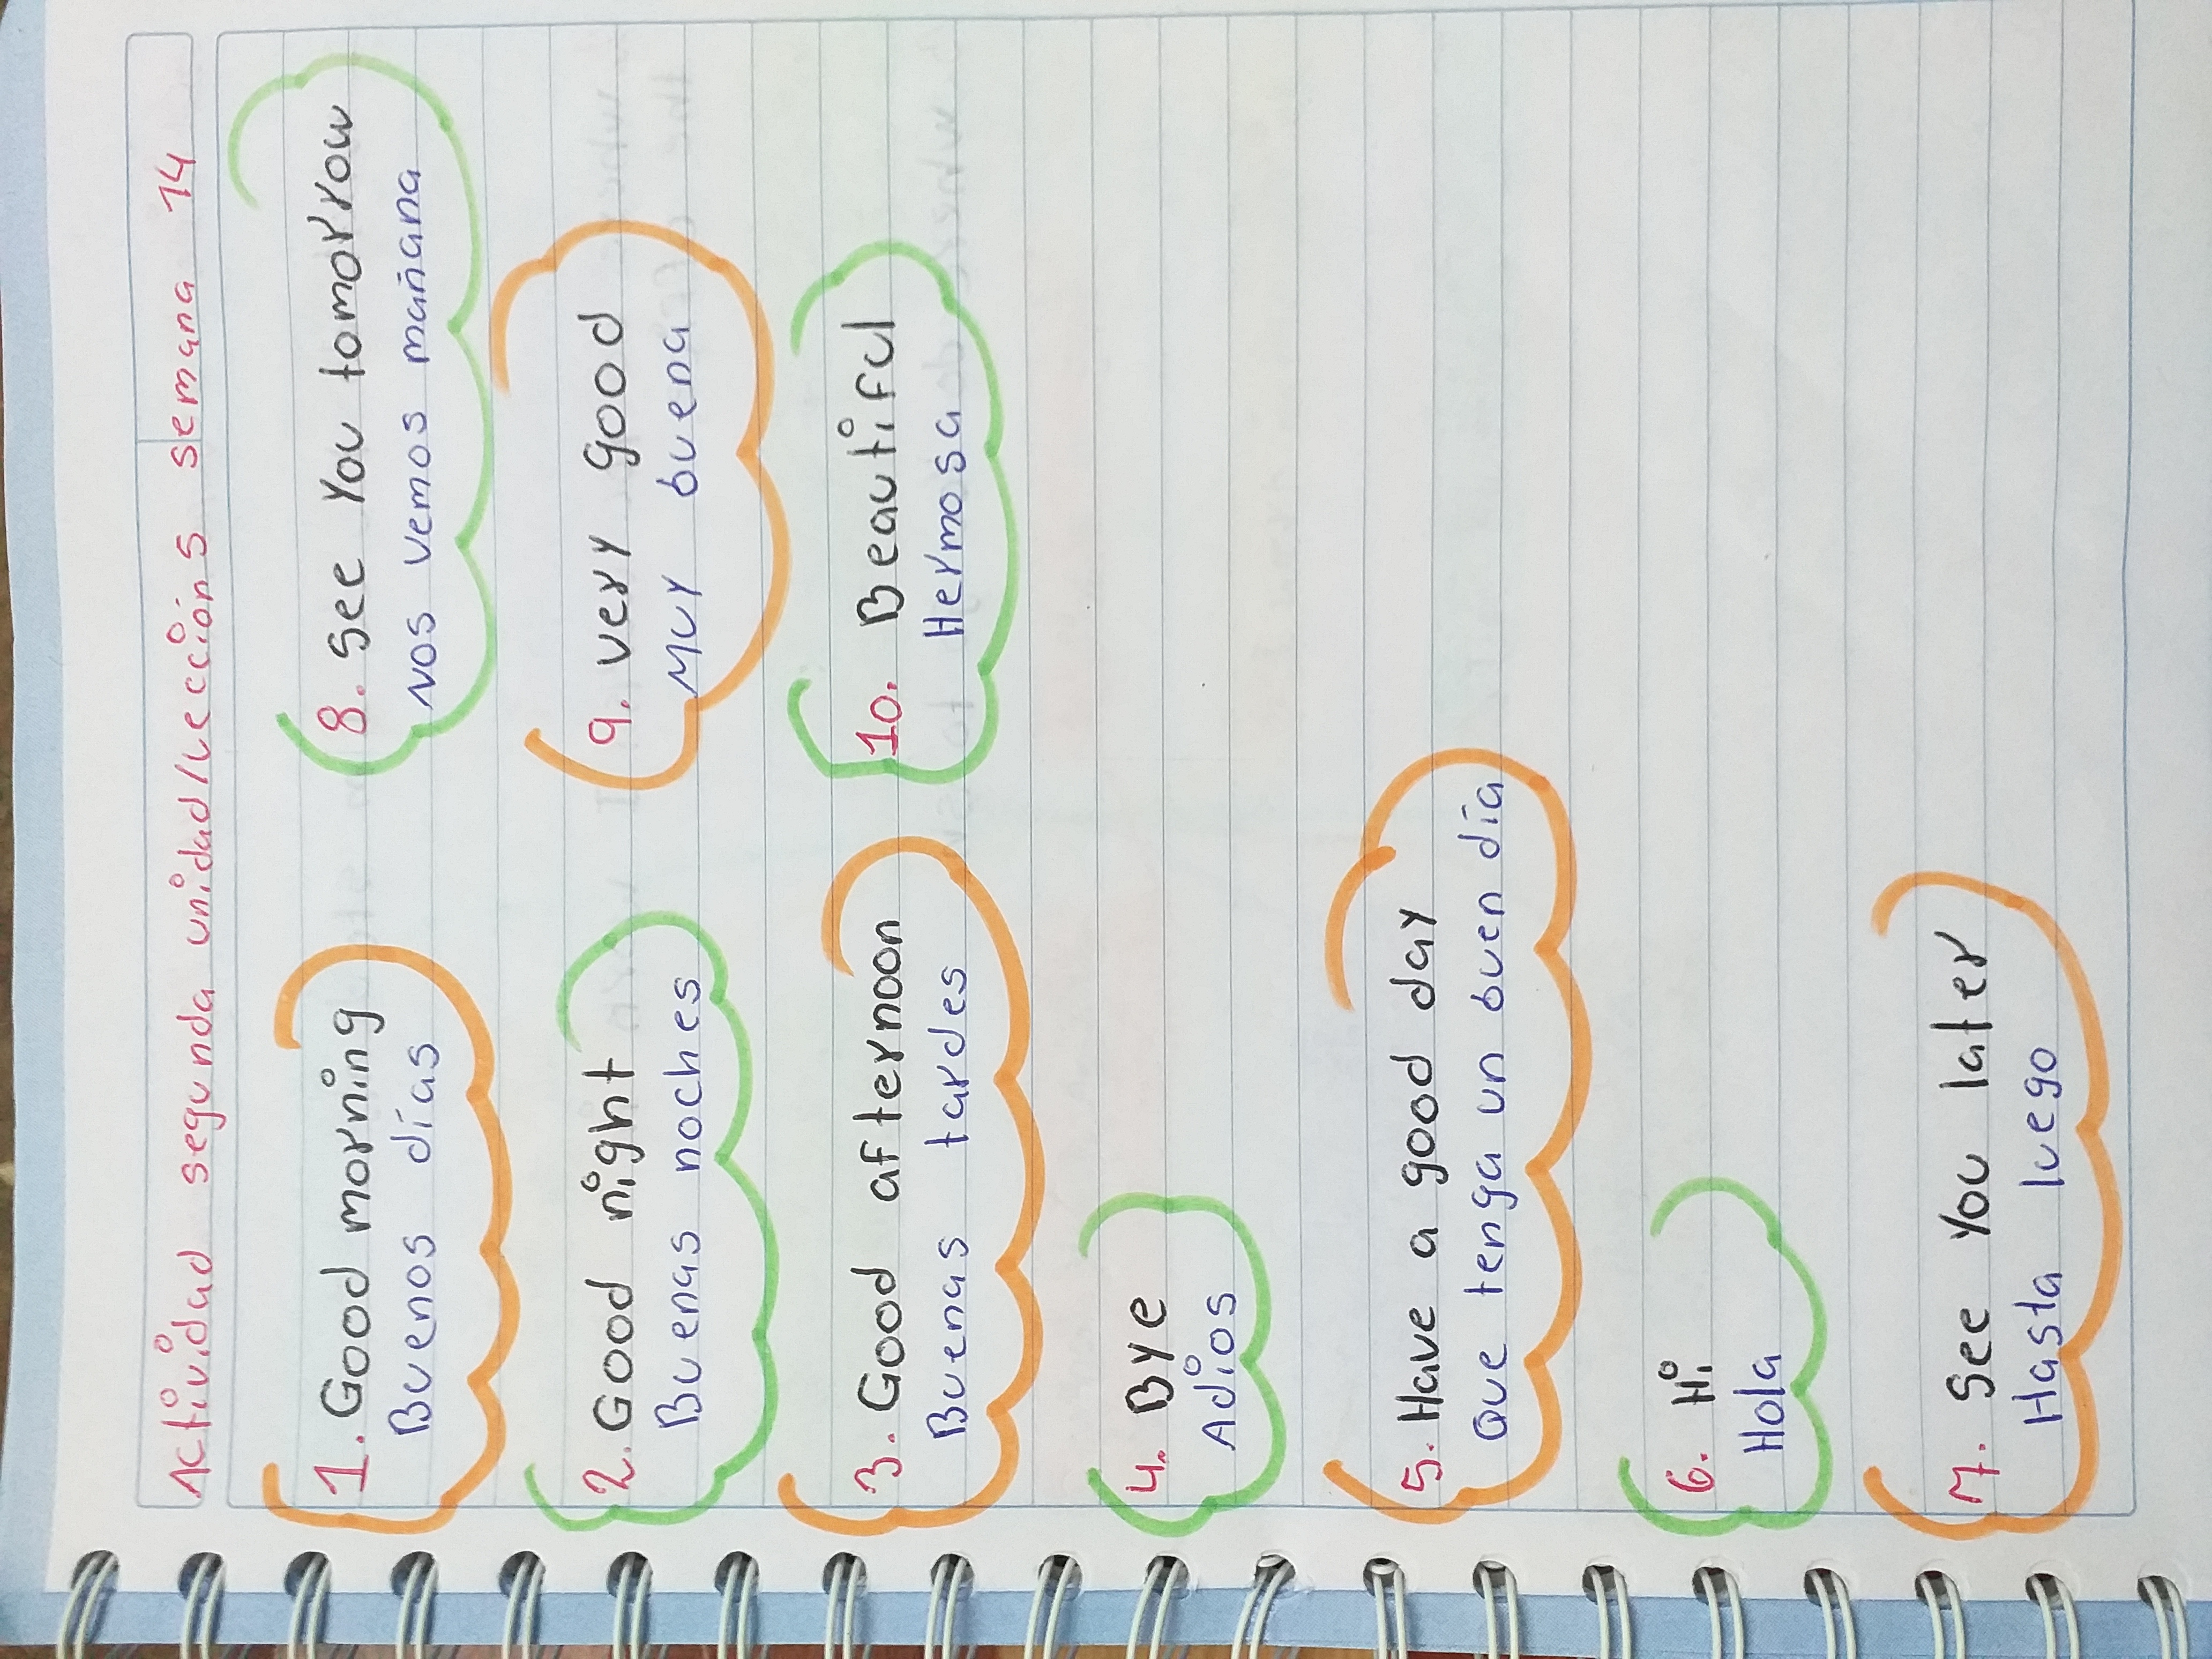 Actividad segunda unidad/lección 5 semana 14
1. Good morning
Buenos días
2. Good night
Buenas noches
3. Good afternoon
Buenas tardes
4. Bye
Adios
5. Have a good day
Que tenga un buen día
6. Hi
Hola
7. See You later
Hasta luego
8. See You tomorrow
Nos vemos mañana
9. very good
Muy buena
10. Beautiful
Hermosa